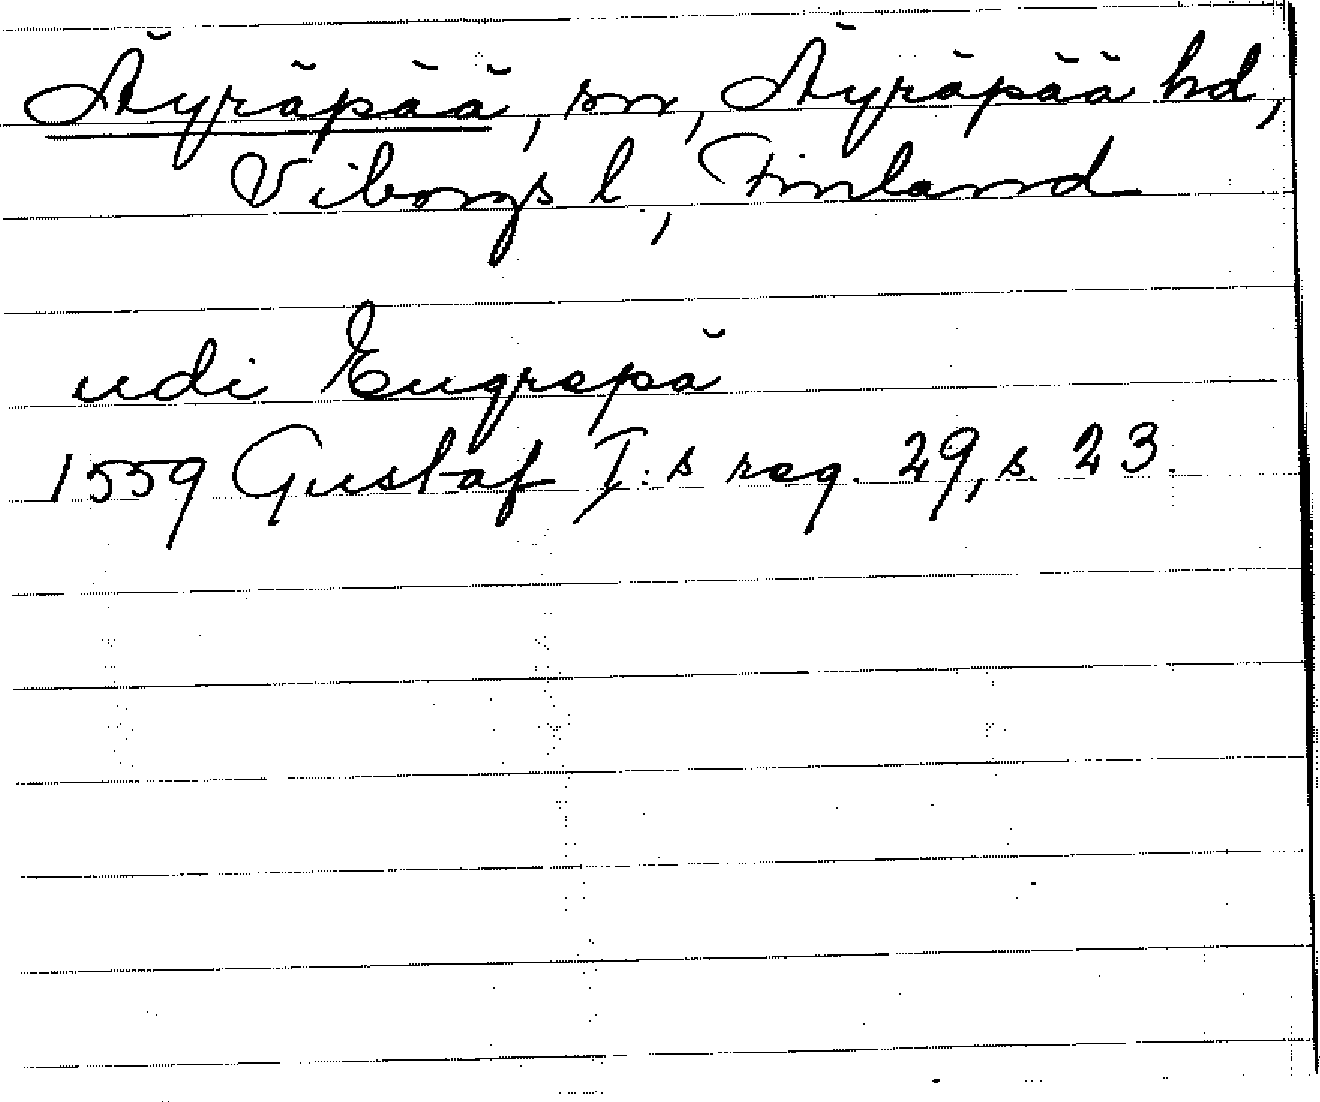 Äyräpää, sn, Äyräpää hd,
Viborgs l., Finland
udi Eugrepä
1559 Gustaf I:s reg. 29, s. 23.